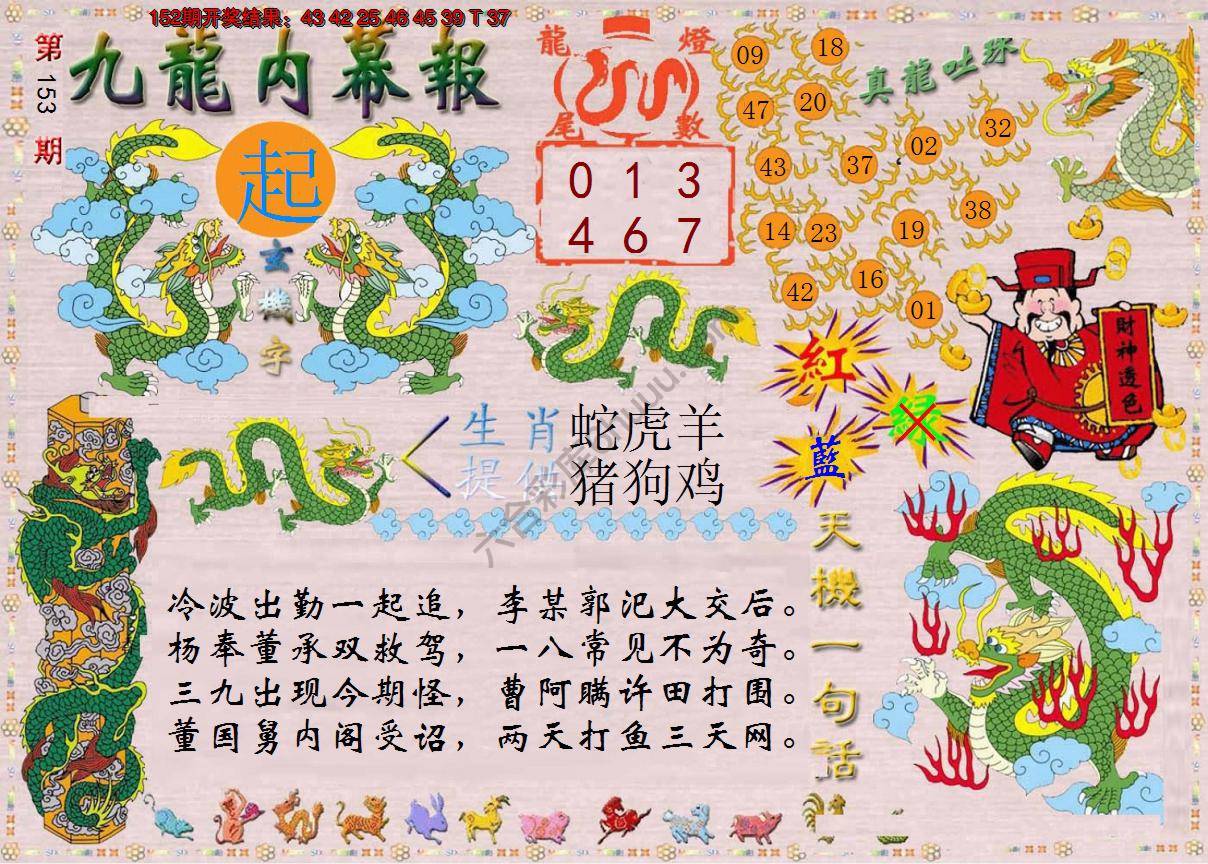 152期开奖结果：43 42 25 46 45 39 T 37
第153期
九龍内幕報
起
玄機字
龍燈
尾數
0 1 3
4 6 7
真龍吐珠
09
18
47
20
32
02
43
37
38
14
23
19
16
42
01
財神透色
紅
绿
藍
生肖 蛇虎羊
提供 猪狗鸡
天機一句話
冷波出勤一起追，李某郭汜大交后。
杨奉董承双救驾，一八常见不为奇。
三九出现今期怪，曹阿瞒许田打围。
董国舅内阁受诏，两天打鱼三天网。